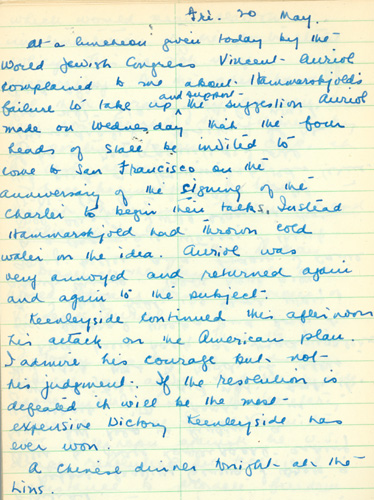 Fri. 20 May.
At a luncheon given today by the
World Jewish Congress Vincent Auriol
complained to me about Hammarskjold's
failure to take up and support the suggestion Auriol
made on Wednesday that the four
heads of state be invited to
come to San Francisco on the
anniversary of the signing of the
Charter to begin their talks. Instead
Hammarskjold had thrown cold
water on the idea. Auriol was
very annoyed and returned again
and again to the subject.
Keenleyside continued this afternoon
his attack on the American plan.
I admire his courage but not
his judgment. If the resolution is
defeated it will be the most
expensive Victory Keenleyside has
ever won.
A Chinese dinner tonight at the
Lins.